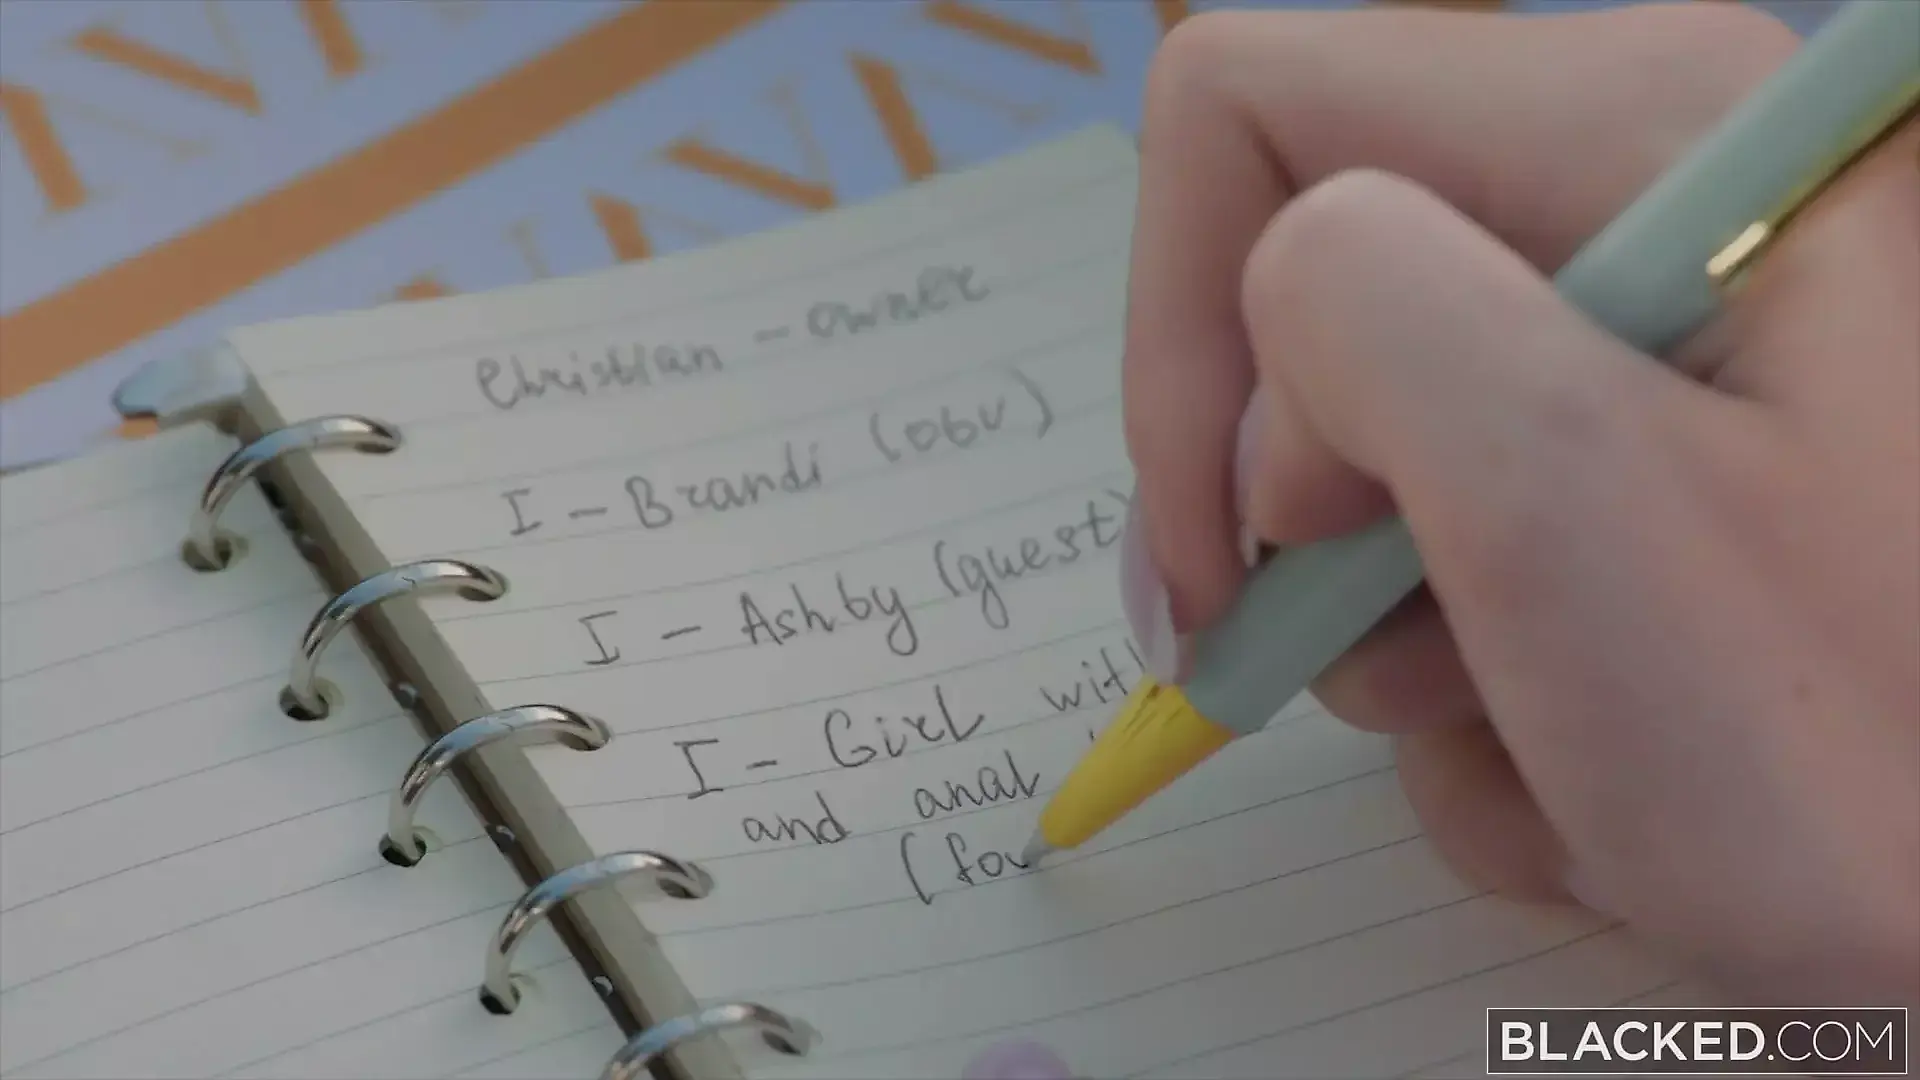 Christian - owner
I - Brandi (obv)
I - Ashby (guest)
I - Girl wit
and anal
(fov
BLACKED.COM